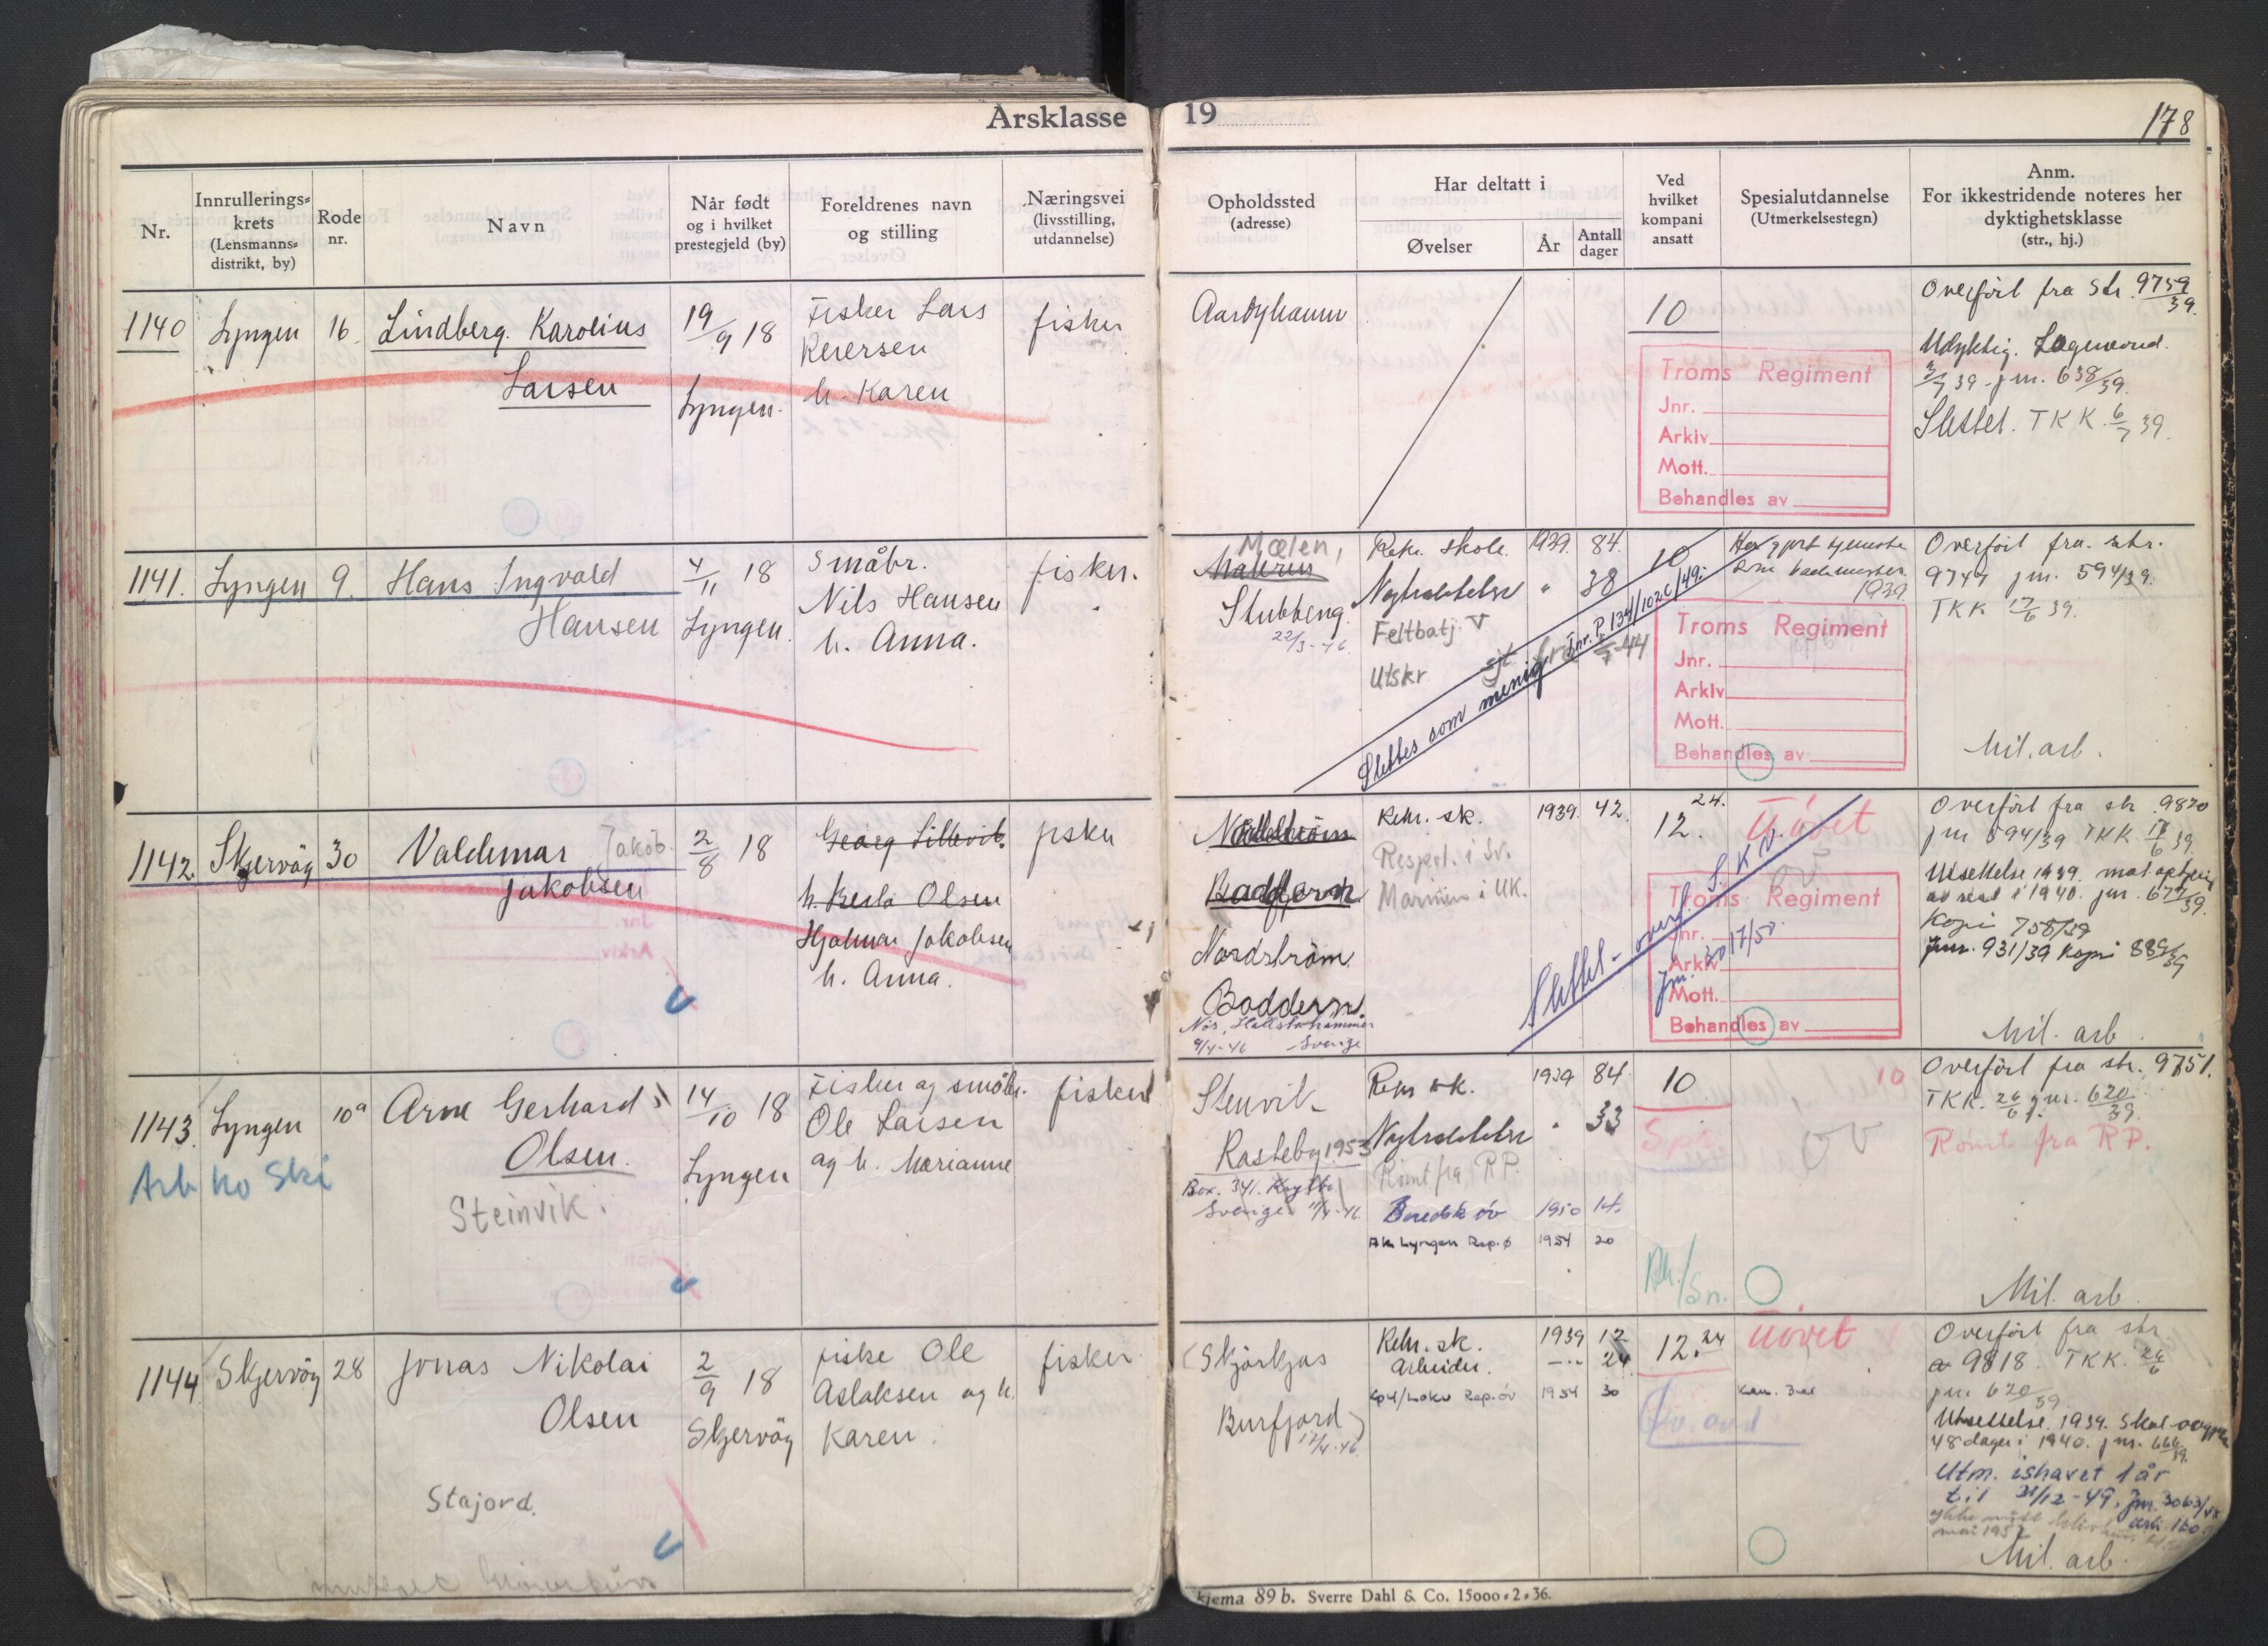 Årsklasse 19
178
Nr.
Innrullerings-
krets
(Lensmanns-
distrikt, by)
Rode
nr.
Navn
Når født
og i hvilket
prestegjeld (by)
Foreldrenes navn
og stilling
Næringsvei
(livsstilling,
utdannelse)
Opholdssted
(adresse)
Har deltatt i
Øvelser
År
Antall
dager
Ved
hvilket
kompani
ansatt
Spesialutdannelse
(Utmerkelsestegn)
Anm.
For ikkestridende noteres her
dyktighetsklasse
(str., hj.)
1140 Lyngen 16 Lindberg. Karolius
Larsen
19/9 18
Lyngen.
Fisker Lars
h. Karen
fisker
10
Overført fra Str. 9759/39.
Udyktig.
3/7 39. jnr. 638/39.
Slettet. TKK. 6/7 39.
Troms Regiment
Jnr.
Arkiv
Mott.
Behandles av
1141. Lyngen 9. Hans Ingvald
Hansen
4/11 18
Lyngen.
Småbr.
Nils Hansen
h. Anna.
fisker.
Mælen,
Stubbeng
22/3-46.
Rekr. skole. 1939. 84.
Nøytralitetsv " 38
Feltbatj. V
Utskr
Slettes som menig. Jnr. P. 134/1020/49.
10
Har gjort tjeneste
som
1939.
Overført fra. str.
9744 jnr. 594/39.
TKK 17/6 39.
Mil. arb.
Troms Regiment
Jnr.
Arkiv
Mott.
Behandles av
1142. Skjervøy 30 Valdemar Jakob.
Jakobsen
2/8 18
Georg Sillevik.
h. Berta Olsen
Hjalmar Jakobsen
h. Anna.
fisker
Nordstrøm
Baddern.
Sverige
9/4-46
Rekr. sk. 1939. 42.
Respet. i Sv.
12. 24.
Uøvet
Slettet - overf. S.K.V.
Overført fra str. 9820
jnr 594/39 TKK 17/6 39.
Utsettelse 1939.
av rest i 1940. jnr. 677/39.
Kopi 758/39
Jnr. 931/39 Kopi
Mil. arb.
Troms Regiment
Jnr.
Arkiv
Mott.
Behandles av
1143. Lyngen 10a Arne Gerhard
Olsen.
Steinvik.
Arb ko Ski
14/10 18
Lyngen
Fisker og småbr.
Ole Larsen
og h. Marianne
fisker
Stenvik
Rasteby 1953
Box. 341.
Sverige 11/4-46
Rekr sk. 1939 84.
Nøytralitetsv " 33
Rømt fra RP.
Beredsk øv 1950 14.
AK Lyngen Rep. ø 1954 20
10
10
ØV
Overført fra str. 9751.
TKK. 26/6 jnr. 620/39.
Rømt fra R.P.
Mil. arb.
1144 Skjervøy 28 Jonas Nikolai
Olsen
Stajord.
2/9 18
Skjervøy
fiske Ole
Aslaksen og h.
Karen.
fisker
Burfjord
12/4-46
Rekr. sk. 1939 12
Arbeider. --- 24
Rep. øv 1954 30
12. 24
Uøvet
Overført fra str.
9818. TKK. 26/6
jnr 620/39.
Utsettelse 1939.
48 dager i 1940. jnr. 666/39.
Utm. ishavet 1 år
til 31/12-49.
Mil. arb.
kjema 89 b. Sverre Dahl & Co. 15000-2-36.